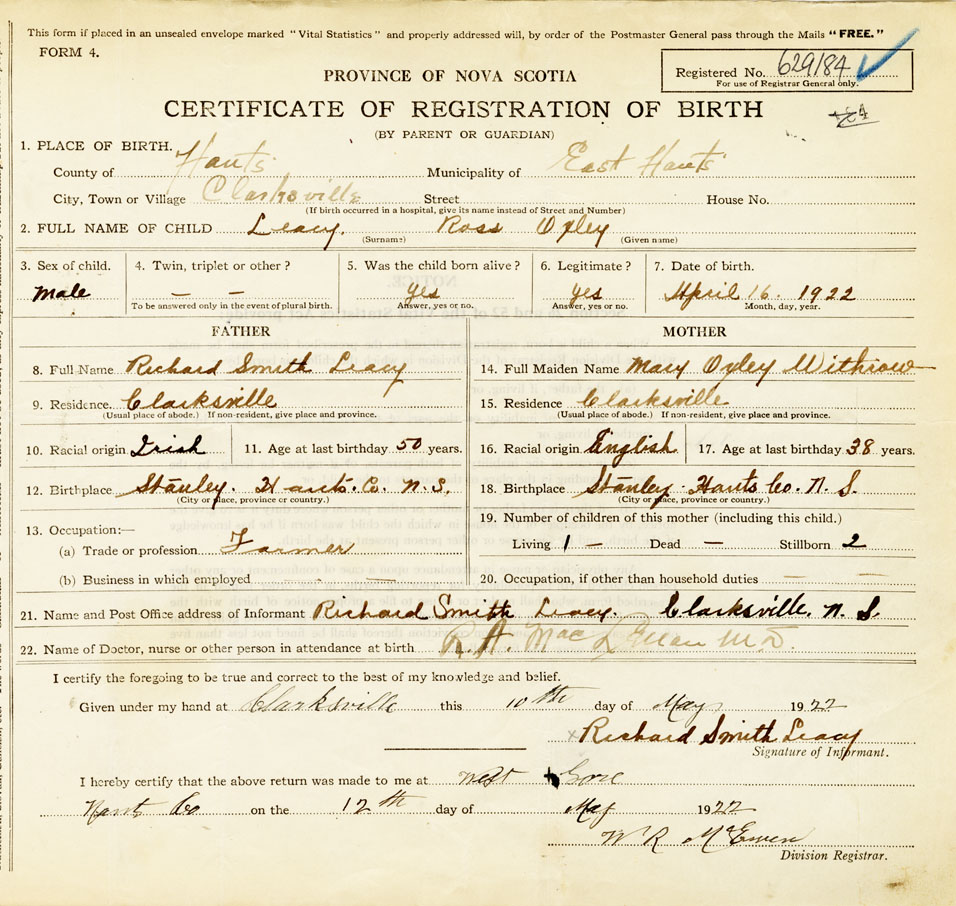 This form if placed in an unsealed envelope marked "Vital Statistics" and properly addressed will, by order of the Postmaster General pass through the Mails "FREE."
FORM 4.
Registered No. 629184
For use of Registrar General only.
PROVINCE OF NOVA SCOTIA
CERTIFICATE OF REGISTRATION OF BIRTH
(BY PARENT OR GUARDIAN)
1. PLACE OF BIRTH.
County of Hants Municipality of East Hants
City, Town or Village Clarksville Street House No.
(If birth occurred in a hospital, give its name instead of Street and Number)
2. FULL NAME OF CHILD Leacy. Ross Oxley
(Surname) (Given name)
3. Sex of child. 4. Twin, triplet or other? 5. Was the child born alive? 6. Legitimate? 7. Date of birth.
Male — — Yes Yes April 16. 1922
To be answered only in the event of plural birth. Answer, yes or no. Answer, yes or no. Month, day, year.
FATHER
8. Full Name Richard Smith Leacy
9. Residence. Clarksville
(Usual place of abode.) If non-resident, give place and province.
10. Racial origin Irish 11. Age at last birthday 50 years.
12. Birthplace Stanley. Hants. Co. N.S.
(City or place, province or country.)
13. Occupation:—
(a) Trade or profession Farmer
(b) Business in which employed —
MOTHER
14. Full Maiden Name Mary Oxley Withrow
15. Residence Clarksville
(Usual place of abode.) If non-resident, give place and province.
16. Racial origin English 17. Age at last birthday 38 years.
18. Birthplace Stanley Hants Co. N. S.
(City or place, province or country.)
19. Number of children of this mother (including this child.)
Living 1 — Dead — Stillborn 2
20. Occupation, if other than household duties — —
21. Name and Post Office address of Informant Richard Smith Leacy. Clarksville. N. S.
22. Name of Doctor, nurse or other person in attendance at birth R. A. M.D.
I certify the foregoing to be true and correct to the best of my knowledge and belief.
Given under my hand at Clarksville this 10th day of May 1922
x Richard Smith Leacy
Signature of Informant.
I hereby certify that the above return was made to me at West Gore
Hants Co on the 12th day of May 1922
W R McEwen
Division Registrar.